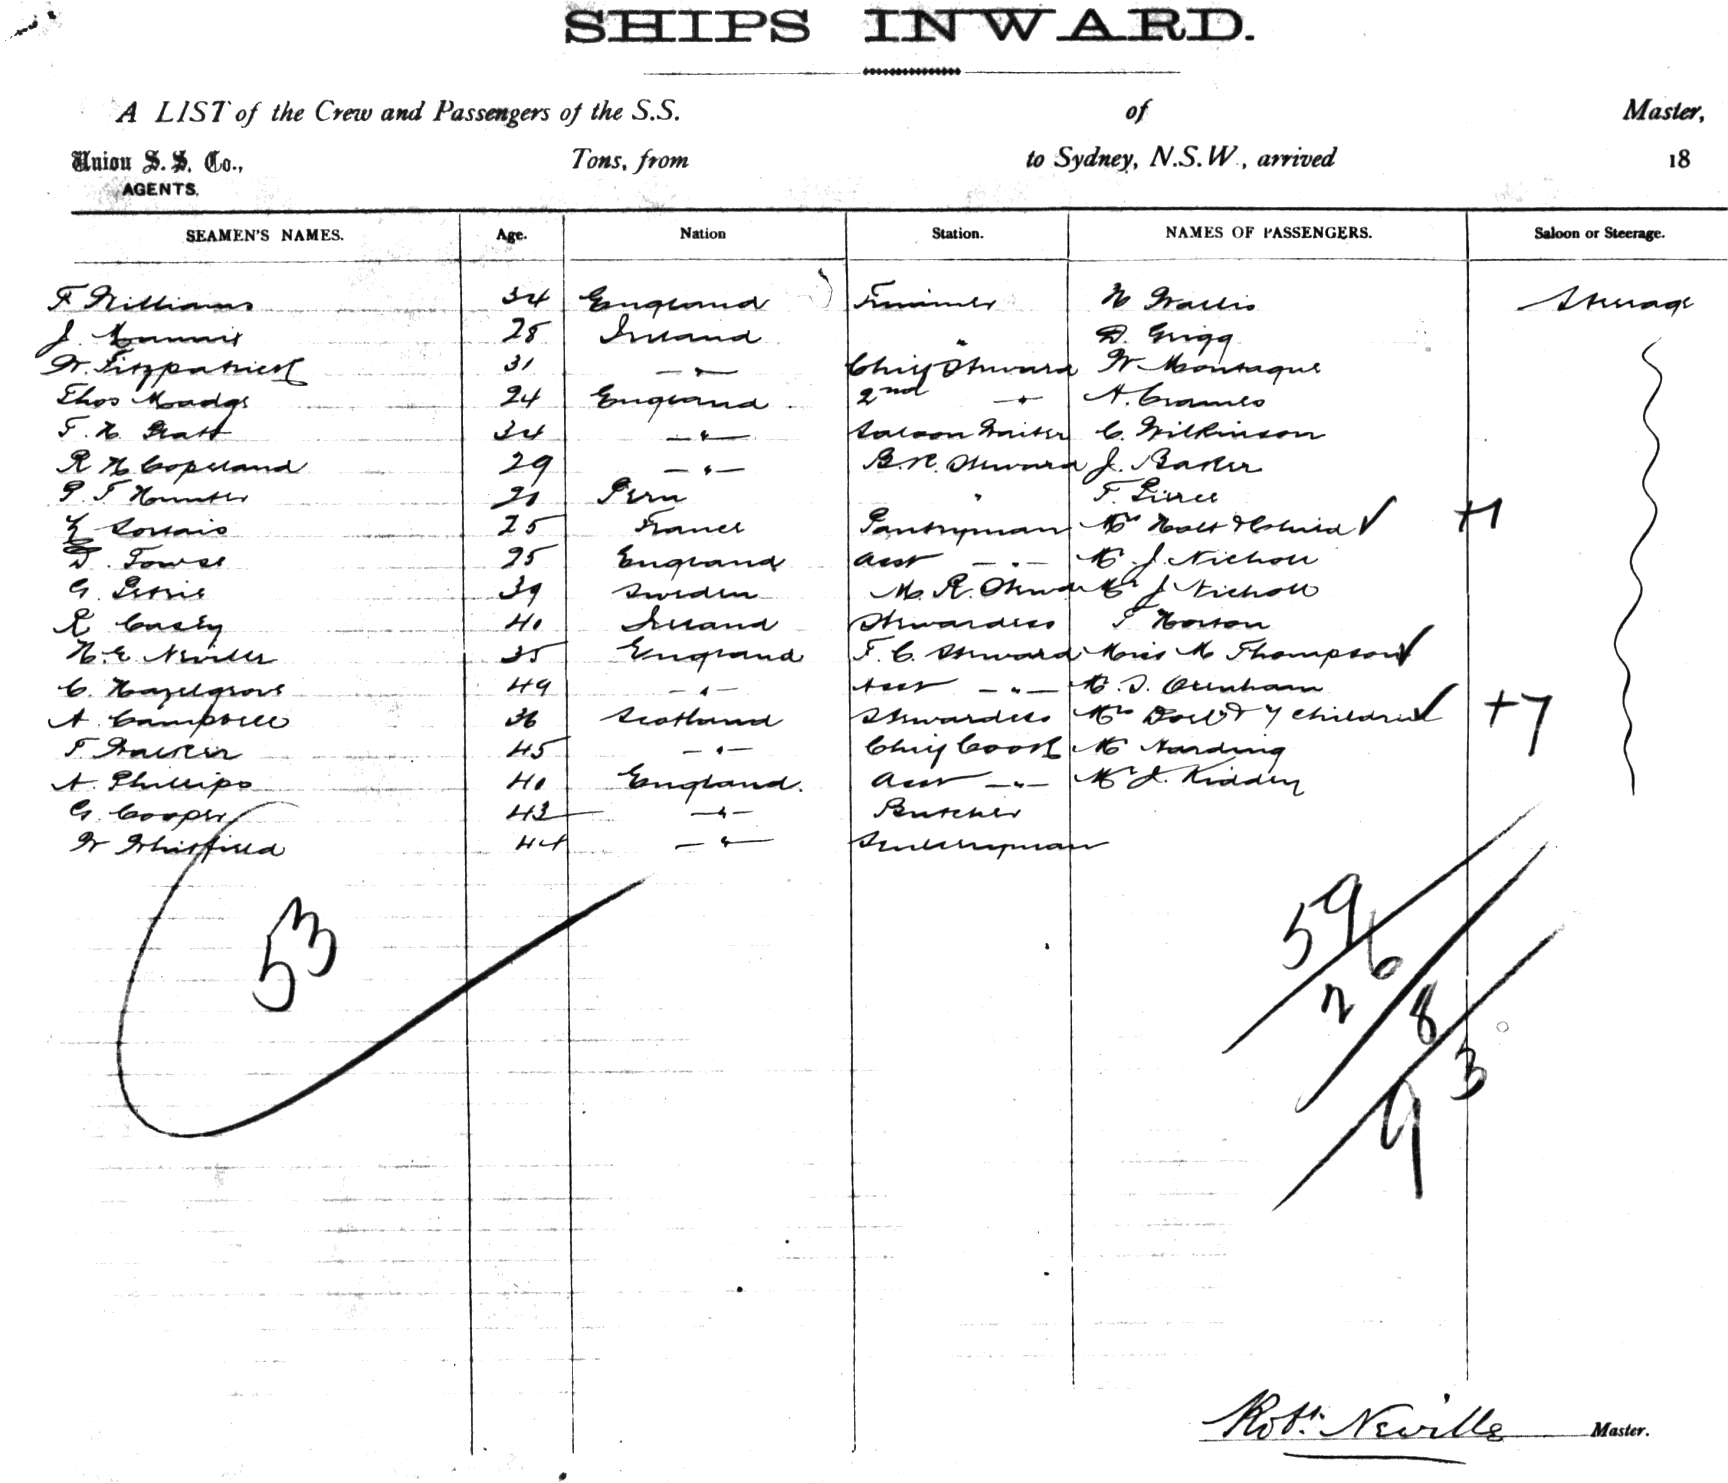 SHIPS INWARD.
A LIST of the Crew and Passengers of the S.S. of Master,
Union S. S. Co., Tons, from to Sydney, N.S.W., arrived 18
AGENTS.
SEAMEN'S NAMES. Age. Nation Station. NAMES OF PASSENGERS. Saloon or Steerage.
F Williams 34 England Trimmer H Wallis Steerage
J. 28 Ireland " D. Grigg
W. Fitzpatrick 31 — " — Chief Steward W Montague
Thos Madge 24 England 2nd — " A.
F. H. Pratt 34 — " — Saloon Waiter C. Wilkinson
R H Copeland 29 — " — B.R. Steward J. Baker
P. T. Hunter 21 Peru " F. Pierce
25 France Pantryman Mrs Holt & Child ✓ +1
D. Towse 25 England Asst — " — Mr J. Nicholl
G. Petrie 39 Sweden M. R. Steward Mrs J Nicholl
R Casey 40 Ireland Stewardess Horton
H. E. Neville 35 England F. C. Steward Miss M Thompson ✓
C. Hazelgrove 49 — " — Asst — " — Mr
A. Campbell 36 Scotland Stewardess Mrs & 7 Children ✓ +7
T. Walker 45 — " — Chief Cook Mr Harding
A. Phillips 40 England. Asst — " — Mr J.
G. Cooper 43 — " — Butcher
W Whitfield 44 — " — Sculleryman
53
59
6
2
8
3
9
Robt. Neville Master.